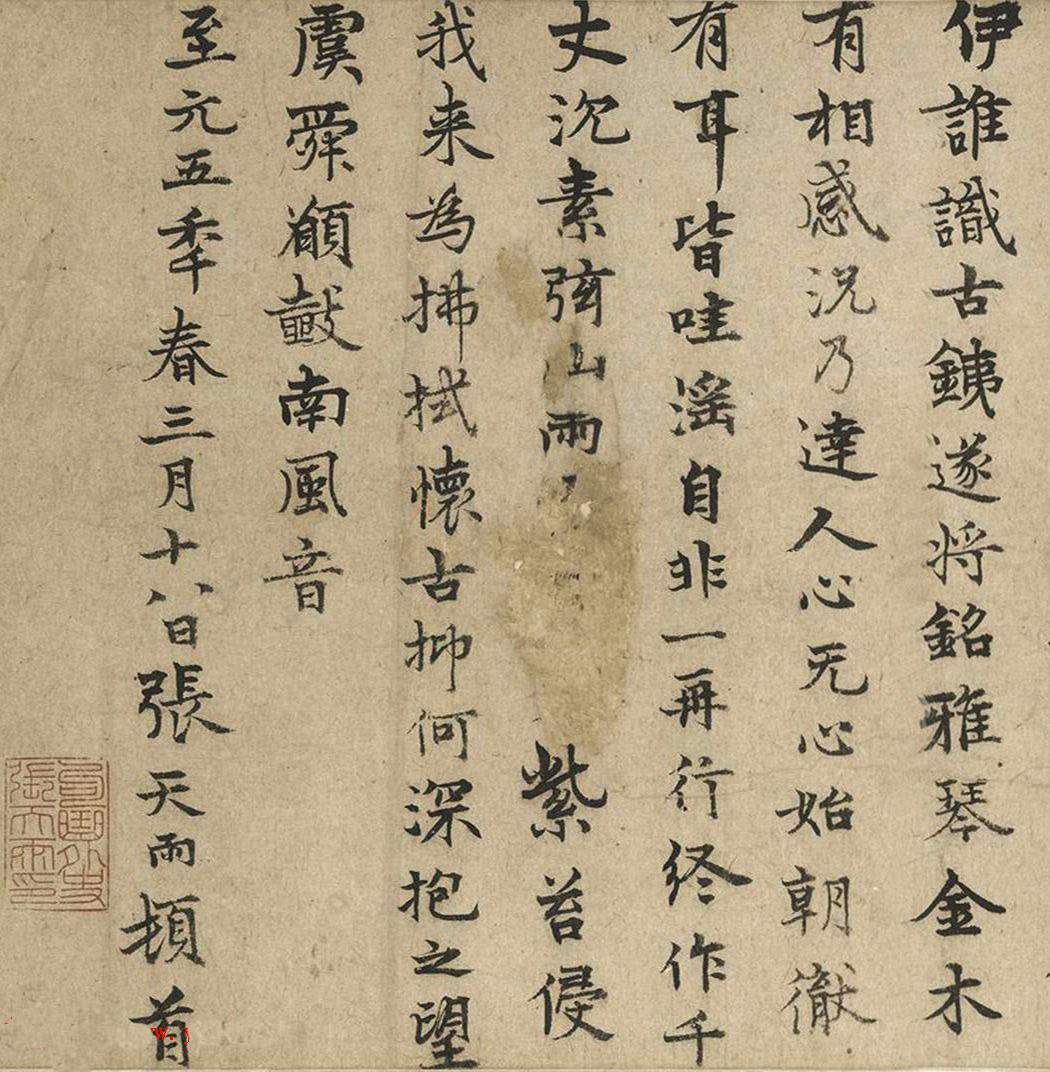 伊誰識古鐵遂將銘雅琴金木
有相感況乃達人心无心始朝徹
有耳皆哇滛自非一再行終作千
丈沉素弦山雨 紫苔侵
我来為拂拭懷古抑何深抱之望
虞舜願鼓南風音
至元五秊春三月十八日張天雨頓首